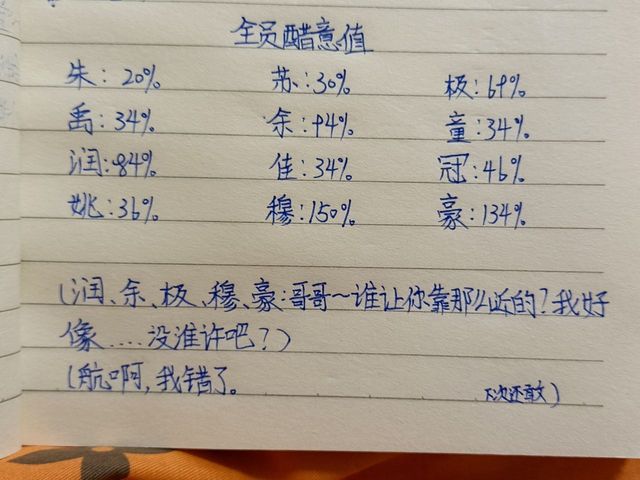 全员醋意值
朱：20% 苏：30% 极：69%
禹：34% 余：94% 童：34%
润：84% 佳：34% 冠：46%
姚：36% 穆：150% 豪：134%
（润、余、极、穆、豪：哥哥～谁让你靠那么近的？我好
像……没准许吧？）
（航啊，我错了。 下次还敢）